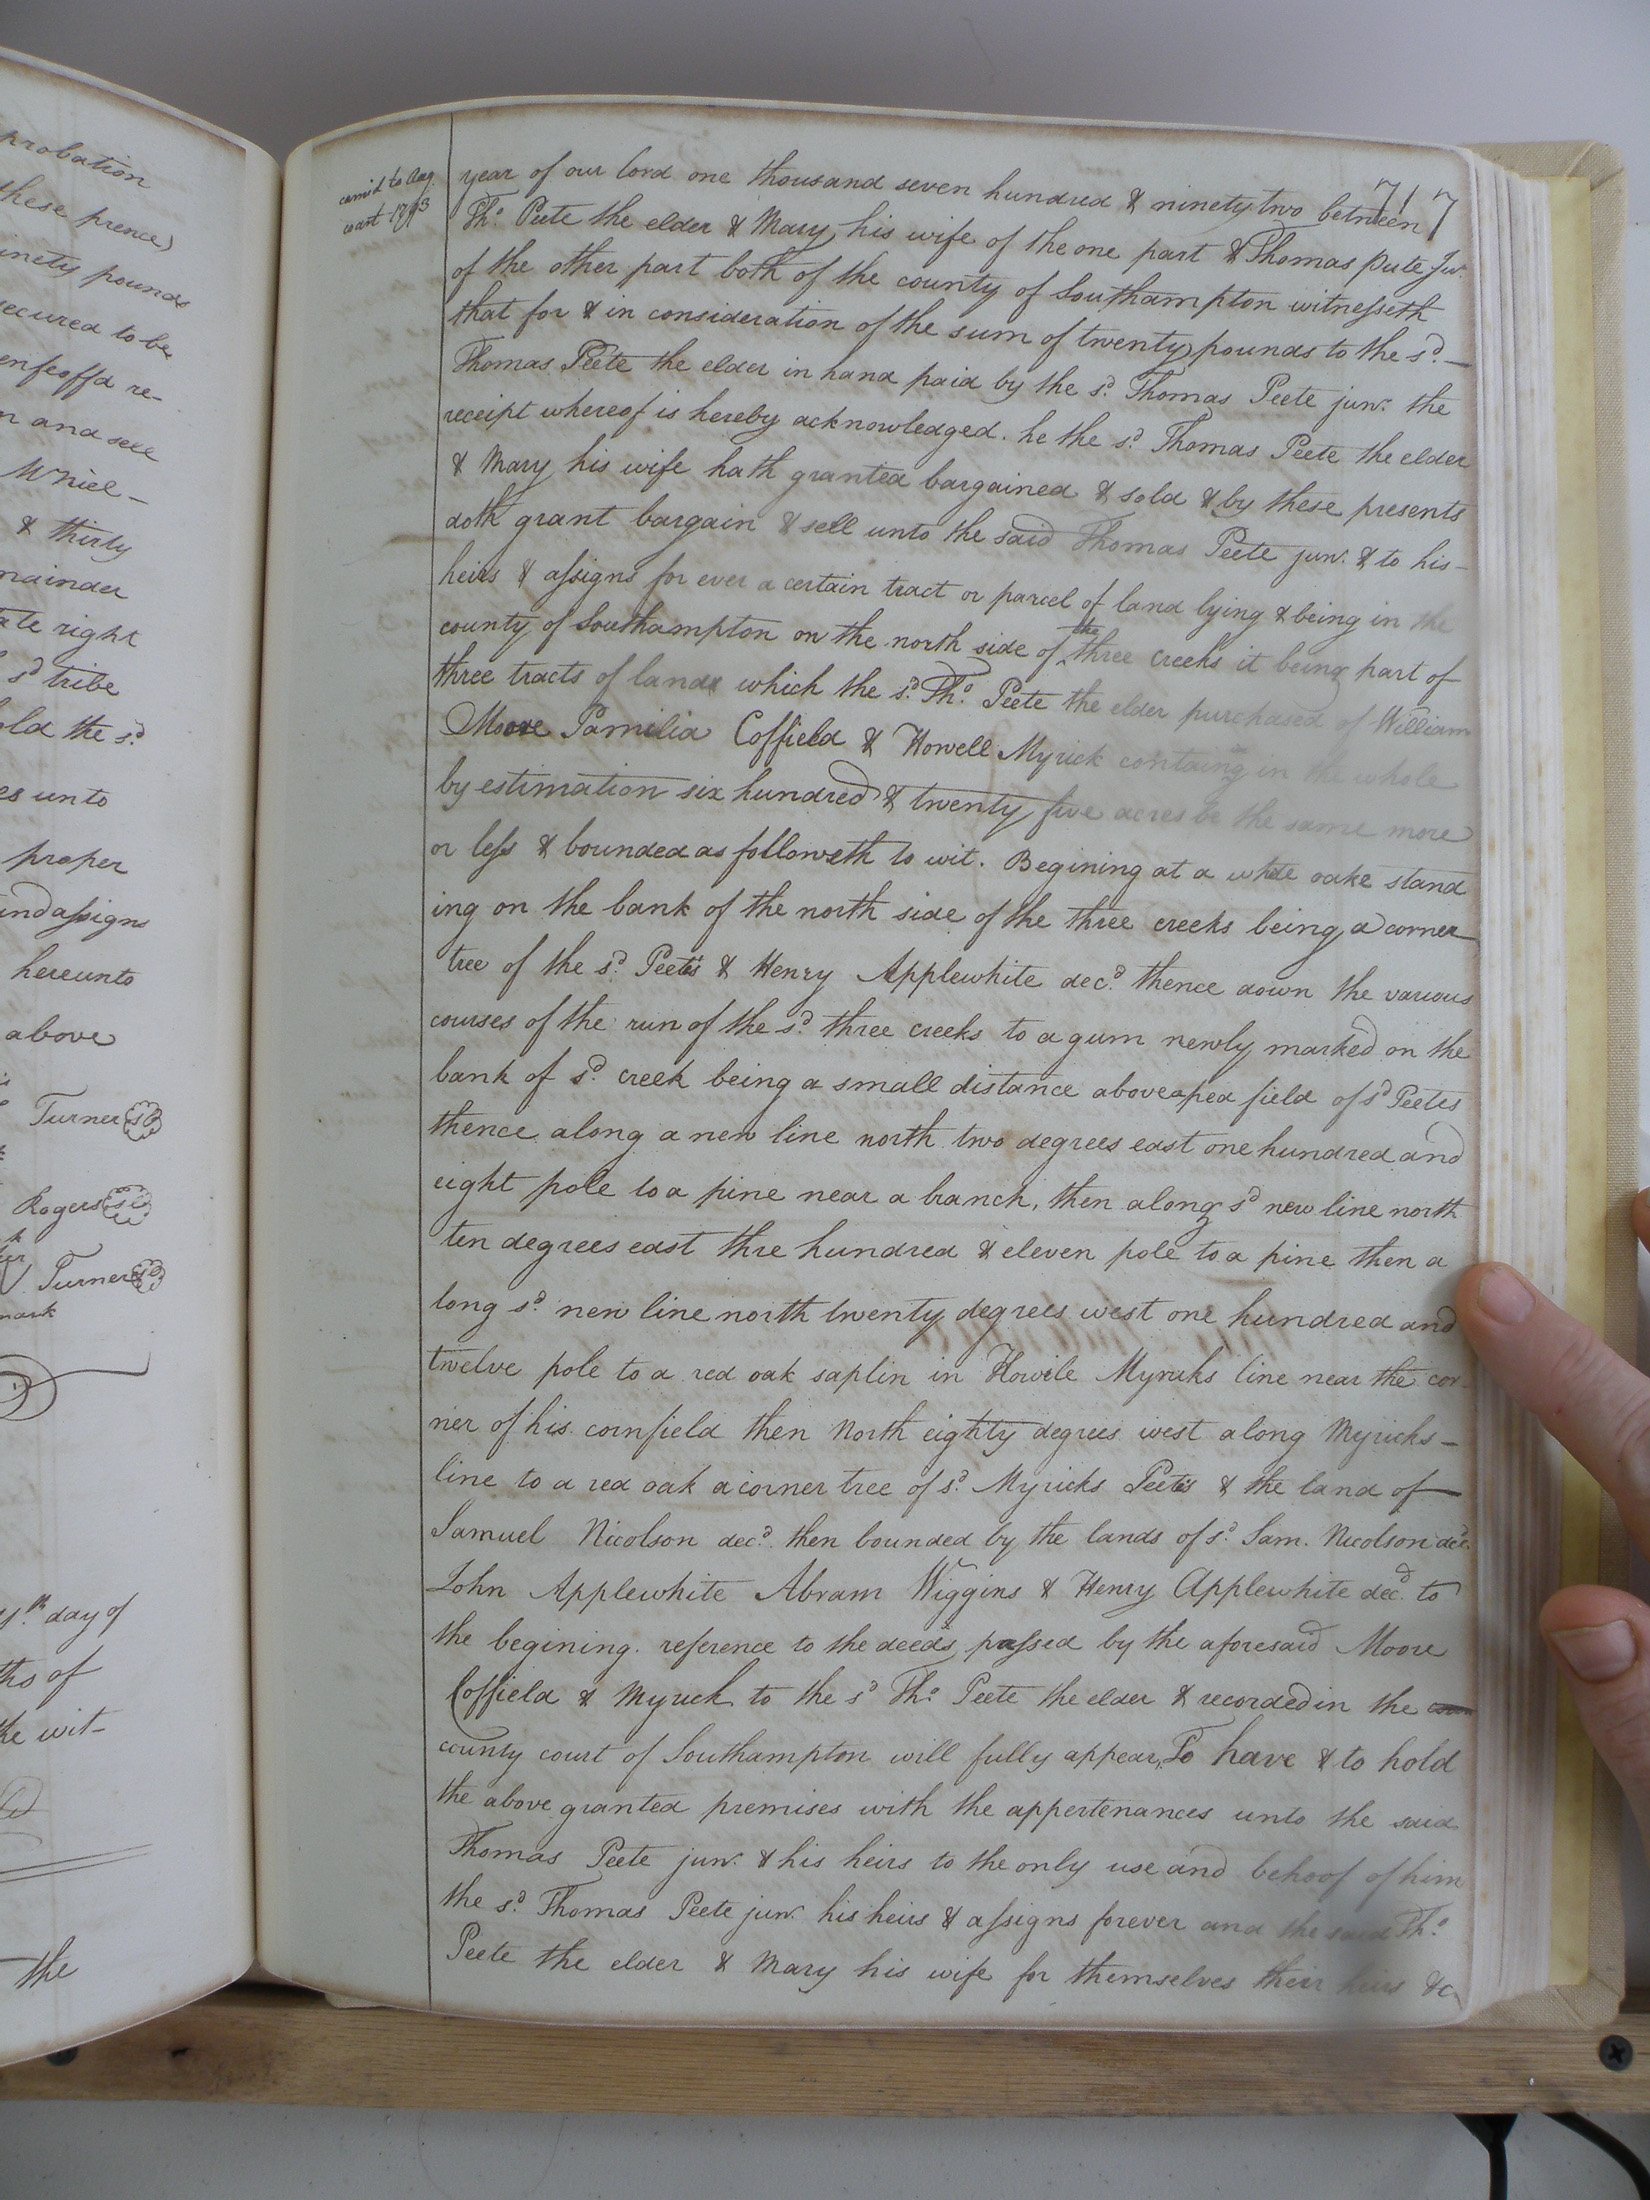 probation
these presence
ninety pounds
secured to be
enfeoffd re-
n and sell
McNiel -
& thirty
mainder
ate right
sd tribe
old the sd.
es unto
proper
and assigns
hereunto
above
Turner
Rogers
Turner
mark
th day of
ths of
the wit-
the
717
carried to Aug.
court 1793
year of our lord one thousand seven hundred & ninety two between
Tho. Peete the elder & Mary his wife of the one part & Thomas Peete Jur.
of the other part both of the county of Southampton witnesseth
that for & in consideration of the sum of twenty pounds to the sd. -
Thomas Peete the elder in hand paid by the sd. Thomas Peete junr. the
receipt whereof is hereby acknowledged. he the sd. Thomas Peete the elder
& Mary his wife hath granted bargained & sold & by these presents
doth grant bargain & sell unto the said Thomas Peete junr. & to his -
heirs & assigns for ever a certain tract or parcel of land lying & being in the
county of Southampton on the north side of the three creeks it being part of
three tracts of land which the sd. Tho. Peete the elder purchased of William
Moore Pamilia Coffield & Howell Myrick containg in the whole
by estimation six hundred & twenty five acres be the same more
or less & bounded as followeth to wit. Begining at a white oake stand
ing on the bank of the north side of the three creeks being a corner
tree of the sd. Peete's & Henry Applewhite decd. thence down the various
courses of the run of the sd. three creeks to a gum newly marked on the
bank of sd. creek being a small distance above a pea field of sd Peetes
thence along a new line north two degrees east one hundred and
eight pole to a pine near a branch, then along sd new line north
ten degrees east thre hundred & eleven pole to a pine then a
long sd. new line north twenty degrees west one hundred and
twelve pole to a red oak saplin in Howele Myricks line near the cor-
ner of his cornfield then North eighty degrees west along Myricks -
line to a red oak a corner tree of sd. Myricks Peetes & the land of
Samuel Nicolson decd. then bounded by the lands of sd. Sam. Nicolson decd.
John Applewhite Abram Wiggins & Henry Applewhite decd. to
the begining. reference to the deeds passed by the aforesaid Moore
Coffield & Myrick to the sd Tho. Peete the elder & recorded in the
county court of Southampton will fully appear, To have & to hold
the above granted premises with the appertenances unto the said
Thomas Peete junr. & his heirs to the only use and behoof of him
the sd. Thomas Peete junr. his heirs & assigns forever and the said Tho.
Peete the elder & Mary his wife for themselves their heirs &c